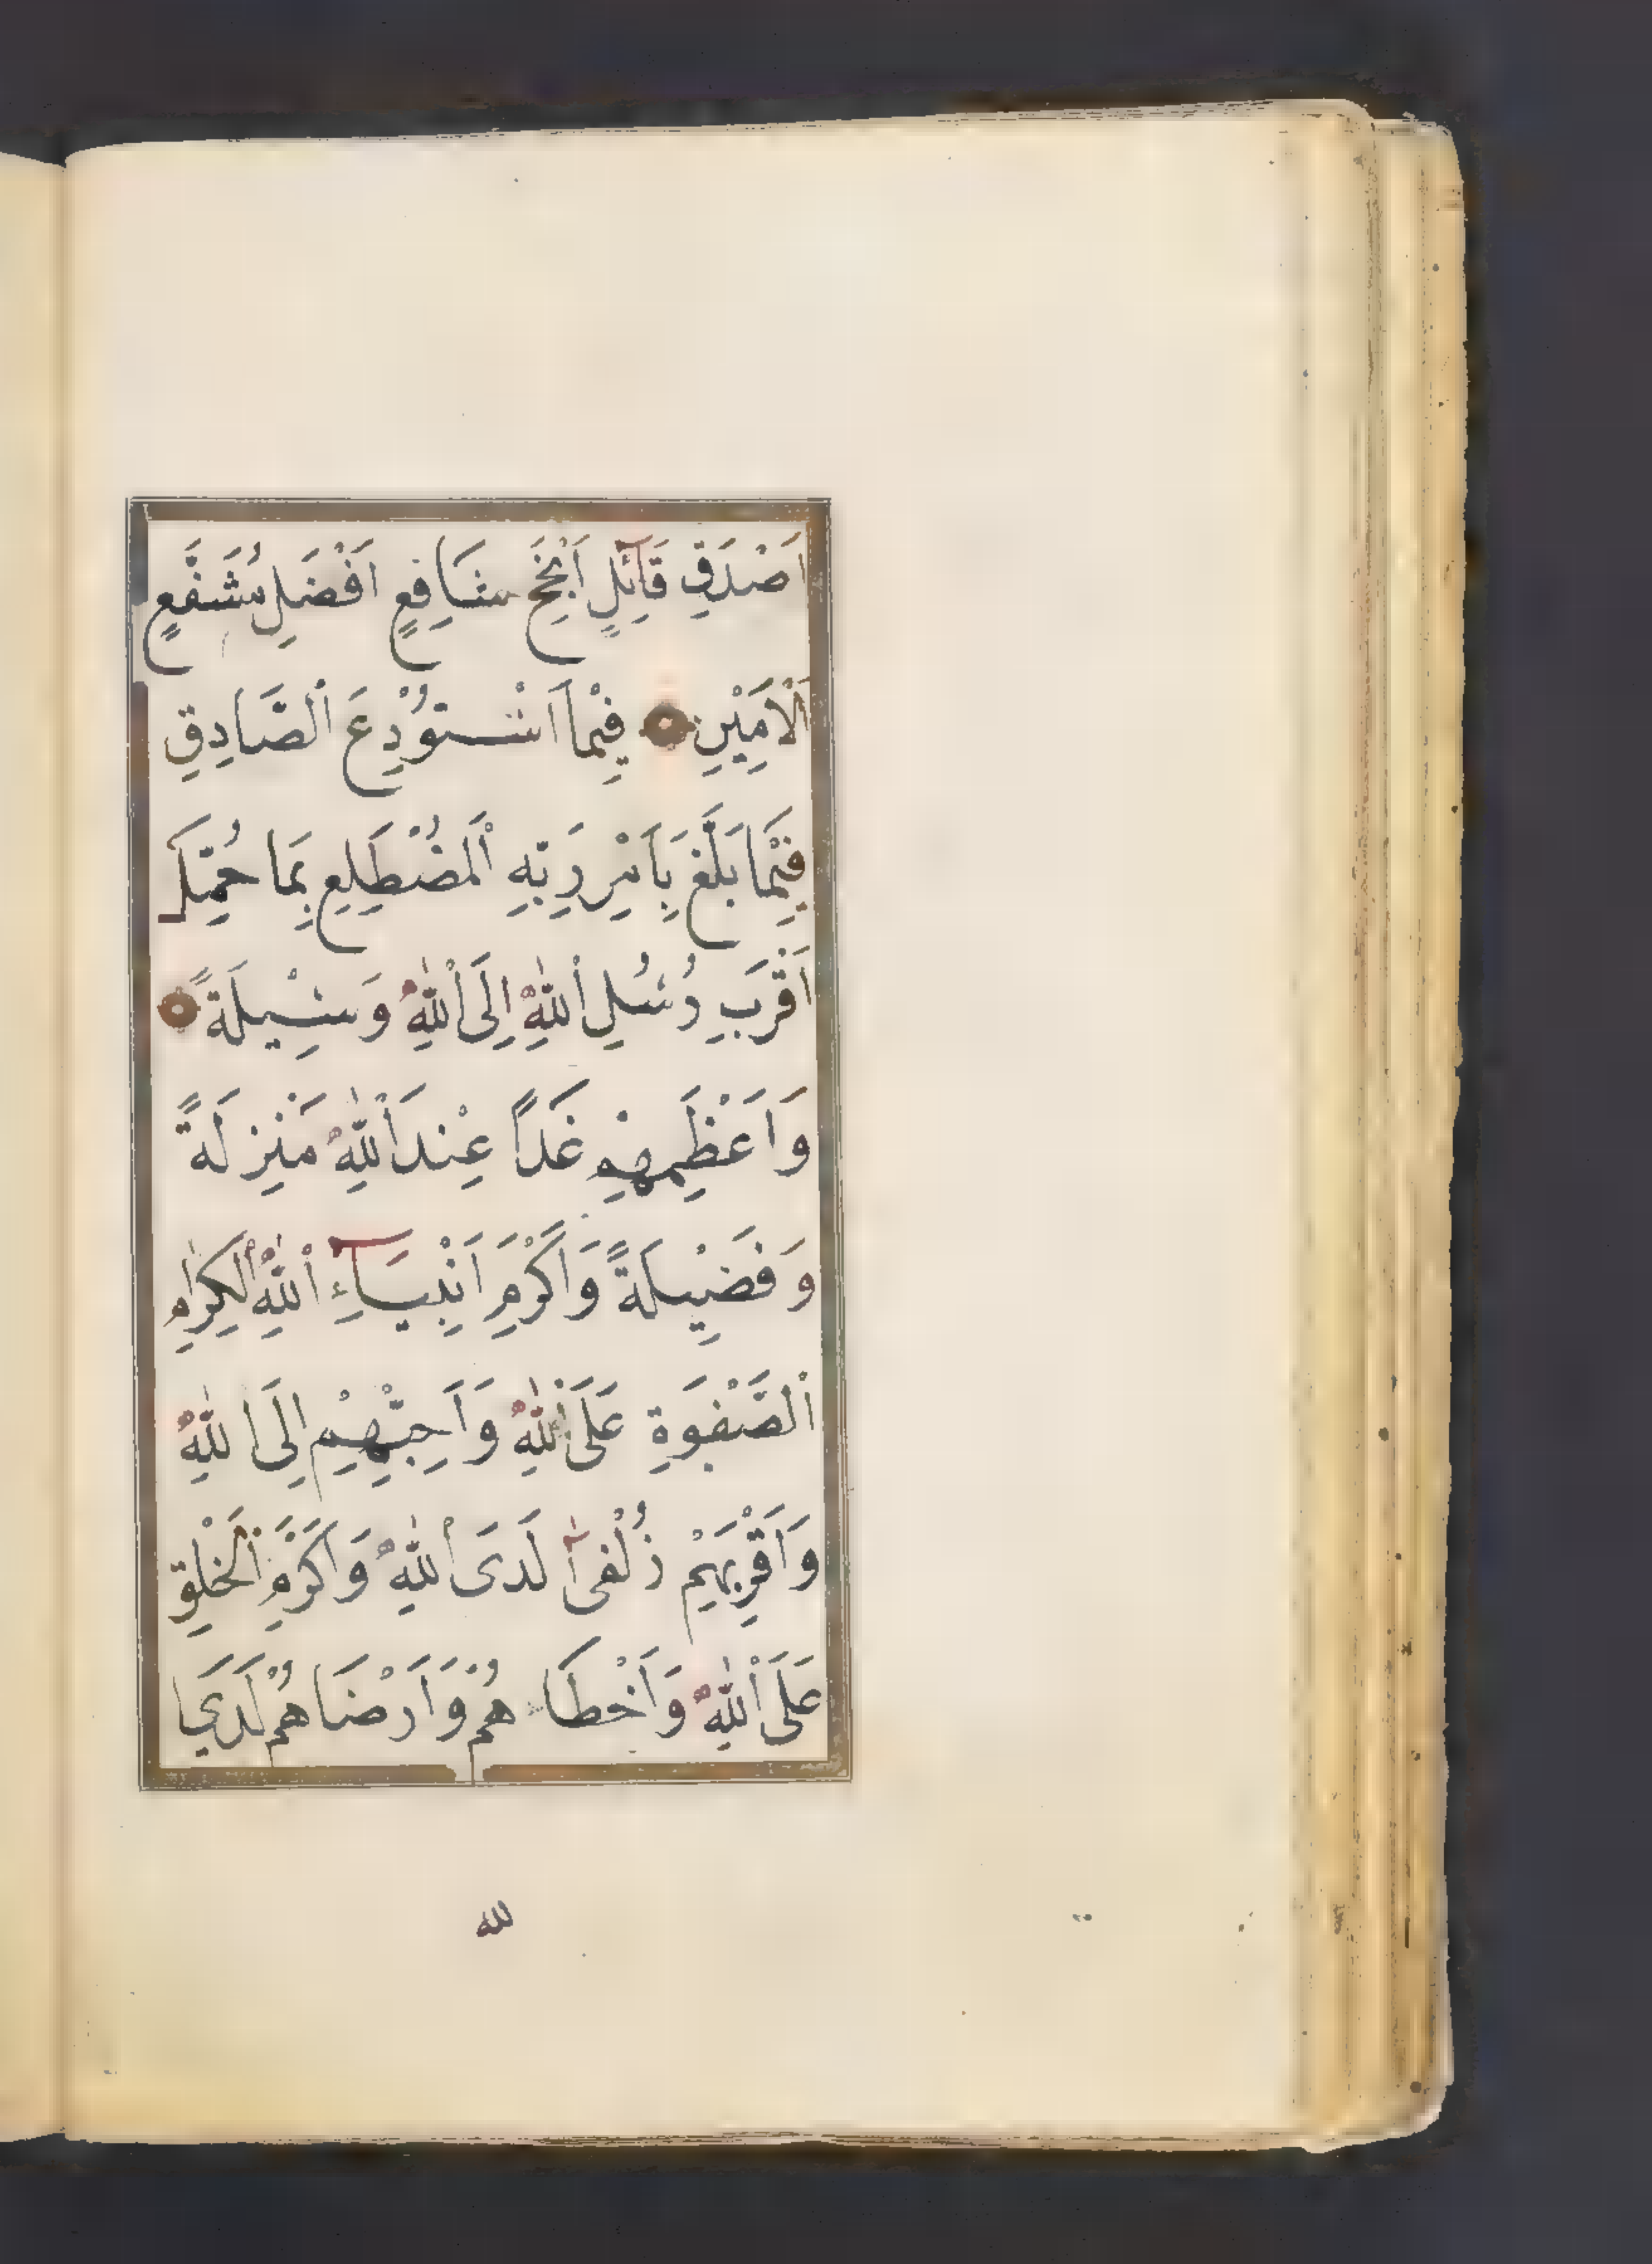 اَصْدَقِ قَآئِلٍ اَنْجَحِ شَافِعٍ اَفْضَلِ مُشَفَّعٍ
اَلْاَمِيْنِ فِيْمَا اسْتُوْدِعَ اْلصَّادِقِ
فِيْمَا بَلَّغَ بِاَمْرِ رَبِّهِ اْلمُضْطَلِعِ بِمَا حُمِّلَ
اَقْرَبِ رُسُلِ اْللّٰهِ اِلَى اْللّٰهِ وَسِيْلَةً
وَاَعْظَمِهِمْ غَدًا عِنْدَ اْللّٰهِ مَنْزِلَةً
وَفَضِيْلَةً وَاَكْرَمِ اَنْبِيَآءِ اْللّٰهِ اْلكِرَامِ
اْلصَّفْوَةِ عَلَى اْللّٰهِ وَاَحَبِّهِمْ اِلَى اللّٰهِ
وَاَقْرَبِهِمْ زُلْفٰى لَدَى اْللّٰهِ وَاَكْرَمِ اْلخَلْقِ
عَلَى اْللّٰهِ وَاَحْظَاهُمْ وَاَرْضَاهُمْ لَدَى ا
لله